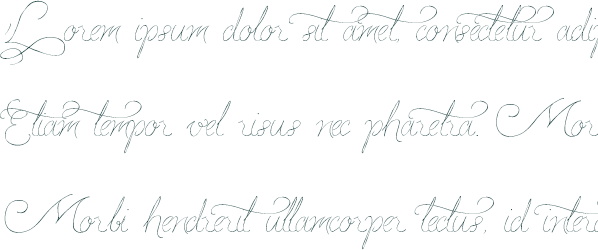 Lorem ipsum dolor sit amet, consectetur adip
Etiam tempor vel risus nec pharetra. Mor
Morbi hendrerit ullamcorper lectus, id inter